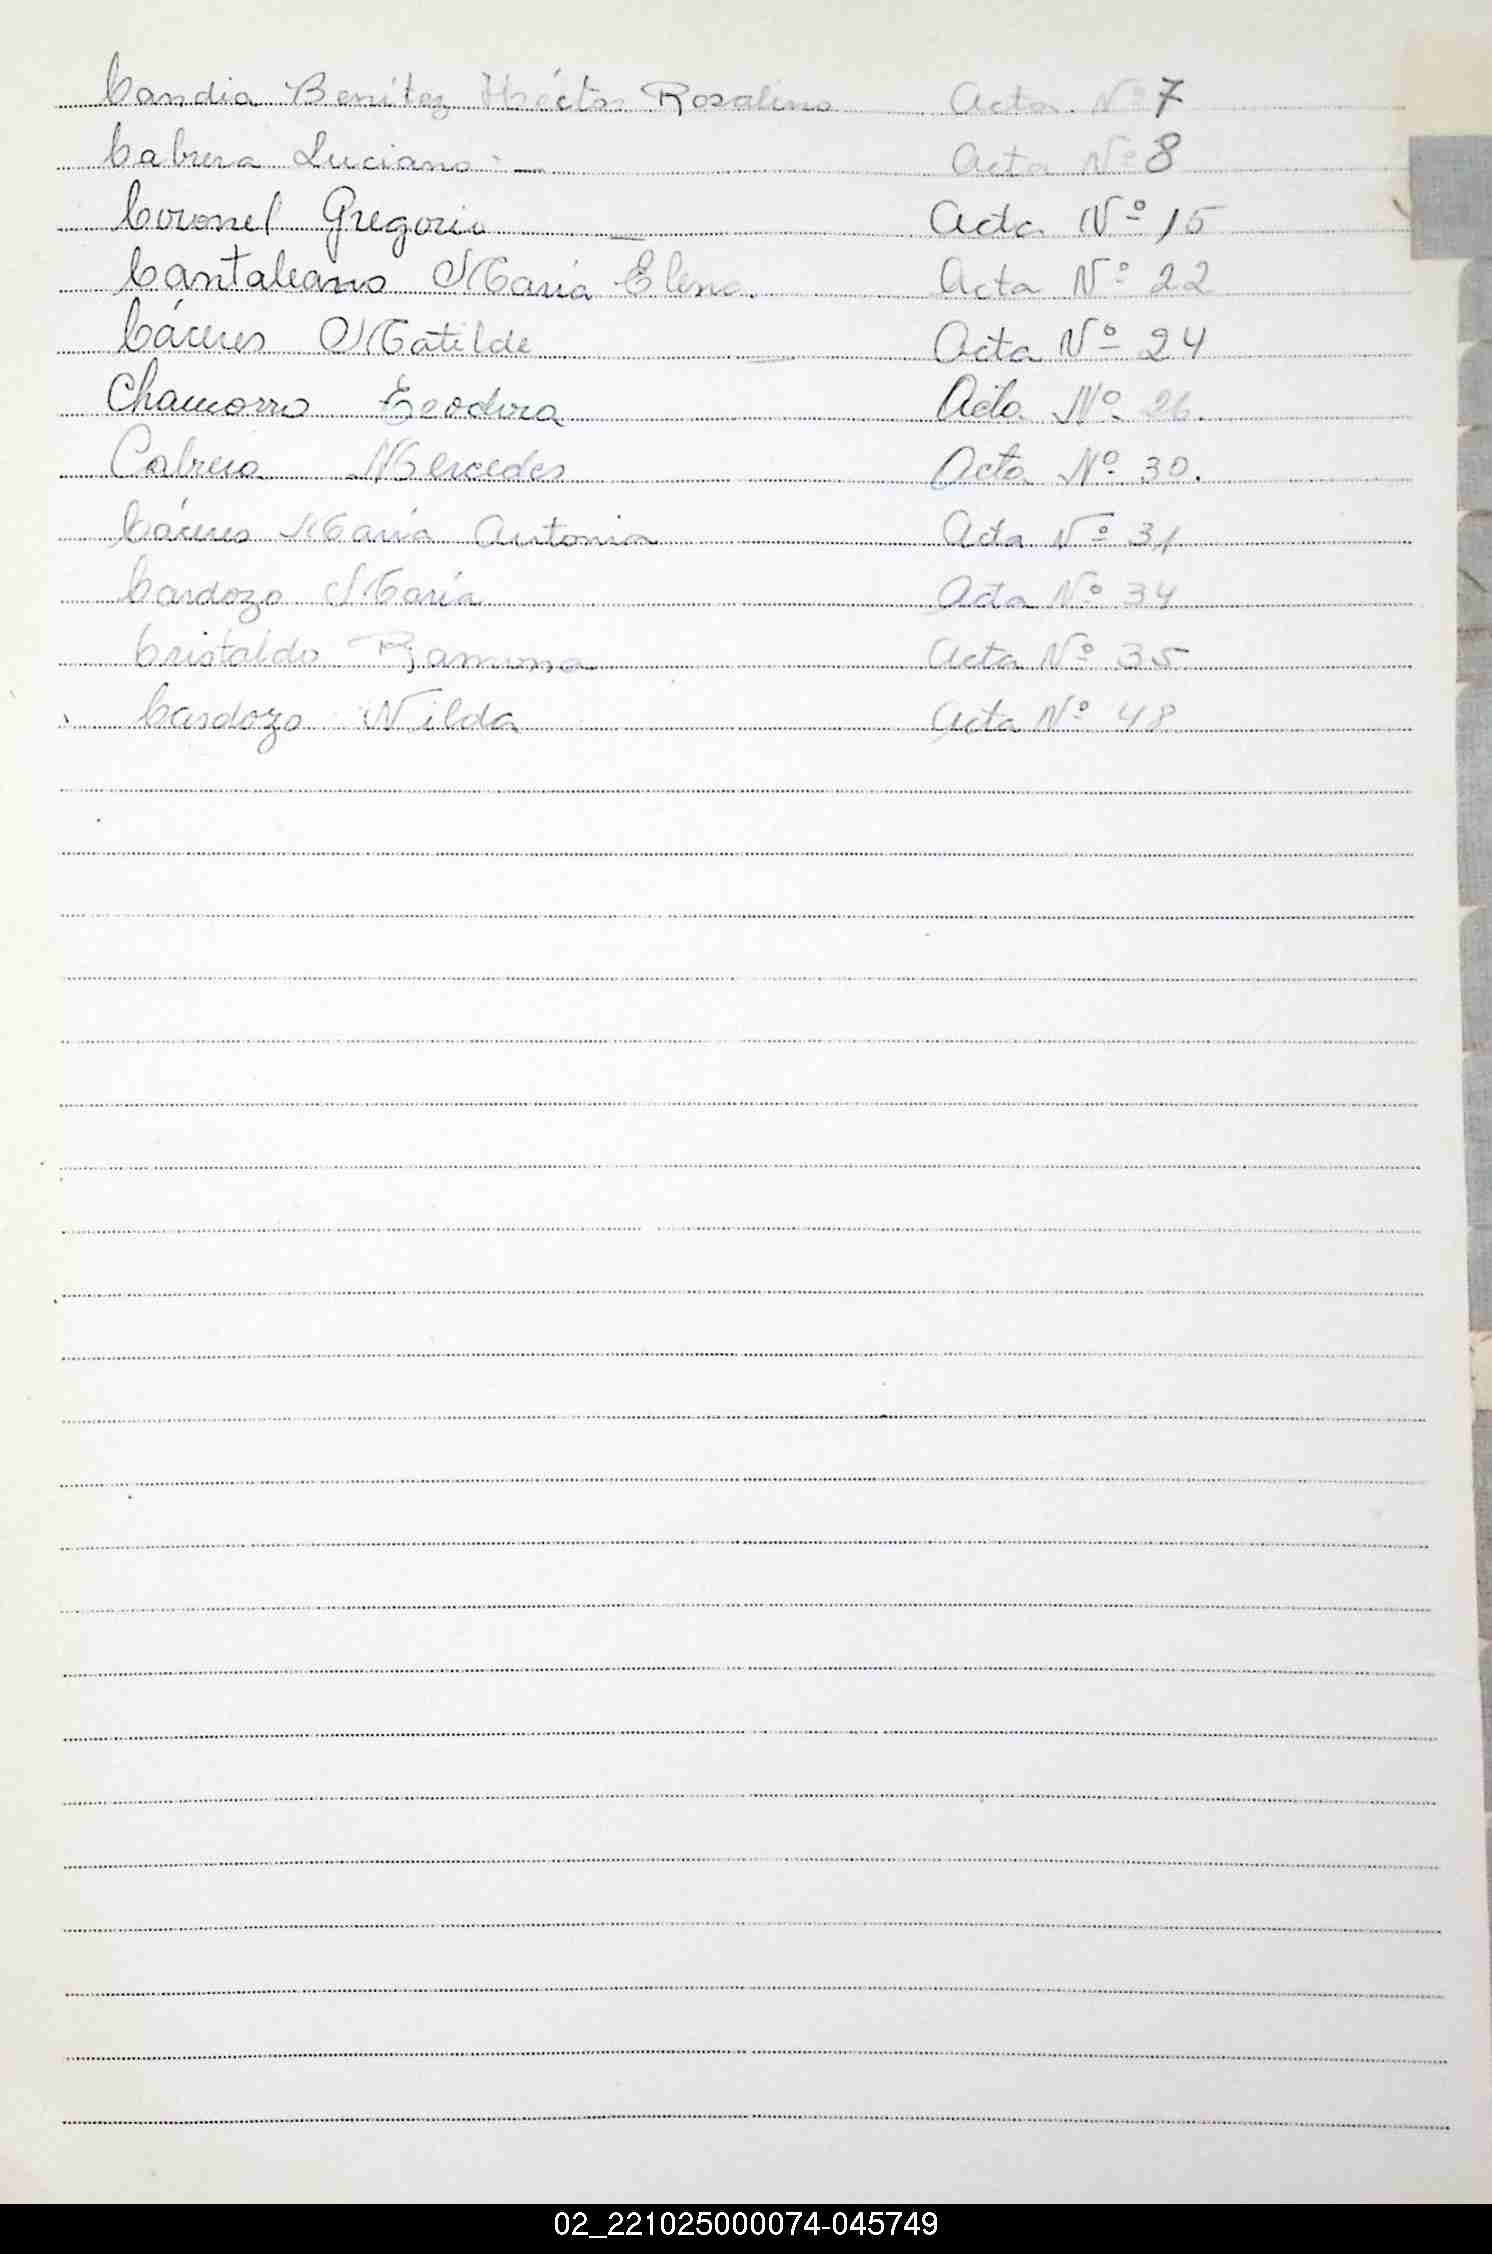 Candia Benítez Héctor Rosalino Acta Nº 7
Cabrera Luciano.- Acta Nº 8
Coronel Gregorio Acta Nº 15
Cantaleano María Elena. Acta Nº 22
Cáceres Matilde Acta Nº 24
Chamorro Teodora Acta Nº 26.
Cabrera Mercedes Acta Nº 30.
Cáceres María Antonia Acta Nº 31
Cardozo María Acta Nº 34
Cristaldo Ramona Acta Nº 35
Cardozo Nilda Acta Nº 48
02_221025000074-045749